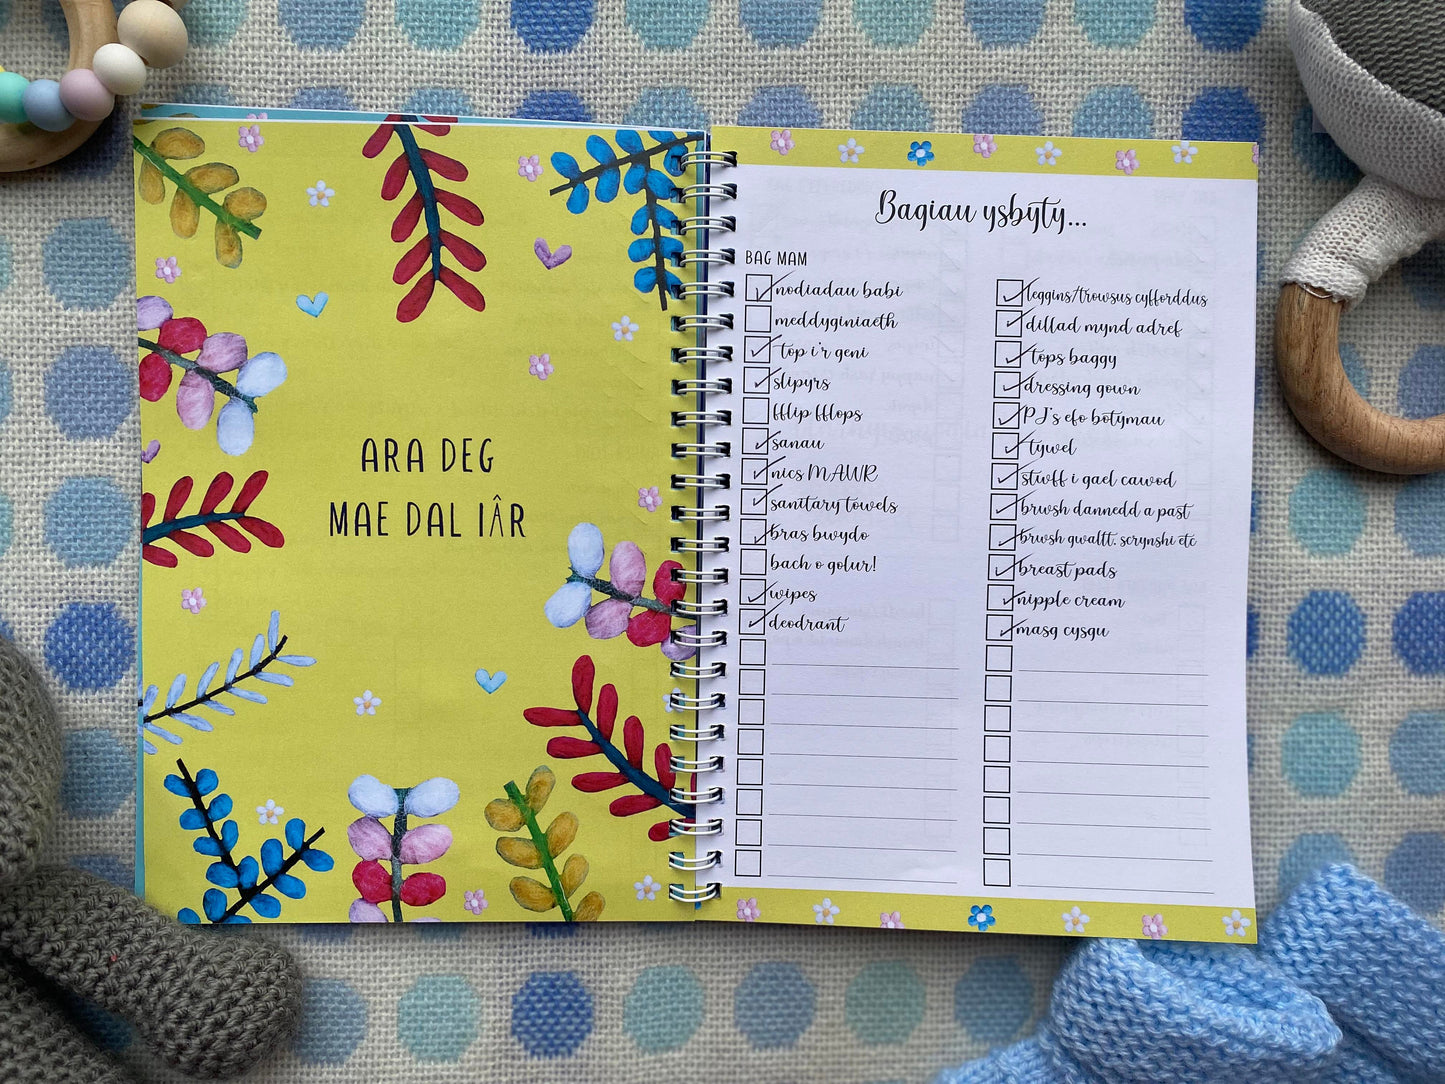 ARA DEG
MAE DAL IÂR
Bagiau ysbyty...
BAG MAM
nodiadau babi
meddyginiaeth
top i'r geni
slipyrs
fflip fflops
sanau
nics MAWR
sanitary towels
bras bwydo
bach o golur!
wipes
deodrant
leggins/trowsus cyfforddus
dillad mynd adref
tops baggy
dressing gown
PJ's efo botymau
tywel
stwff i gael cawod
brwsh dannedd a past
brwsh gwallt. scrynshi etc
breast pads
nipple cream
masg cysgu